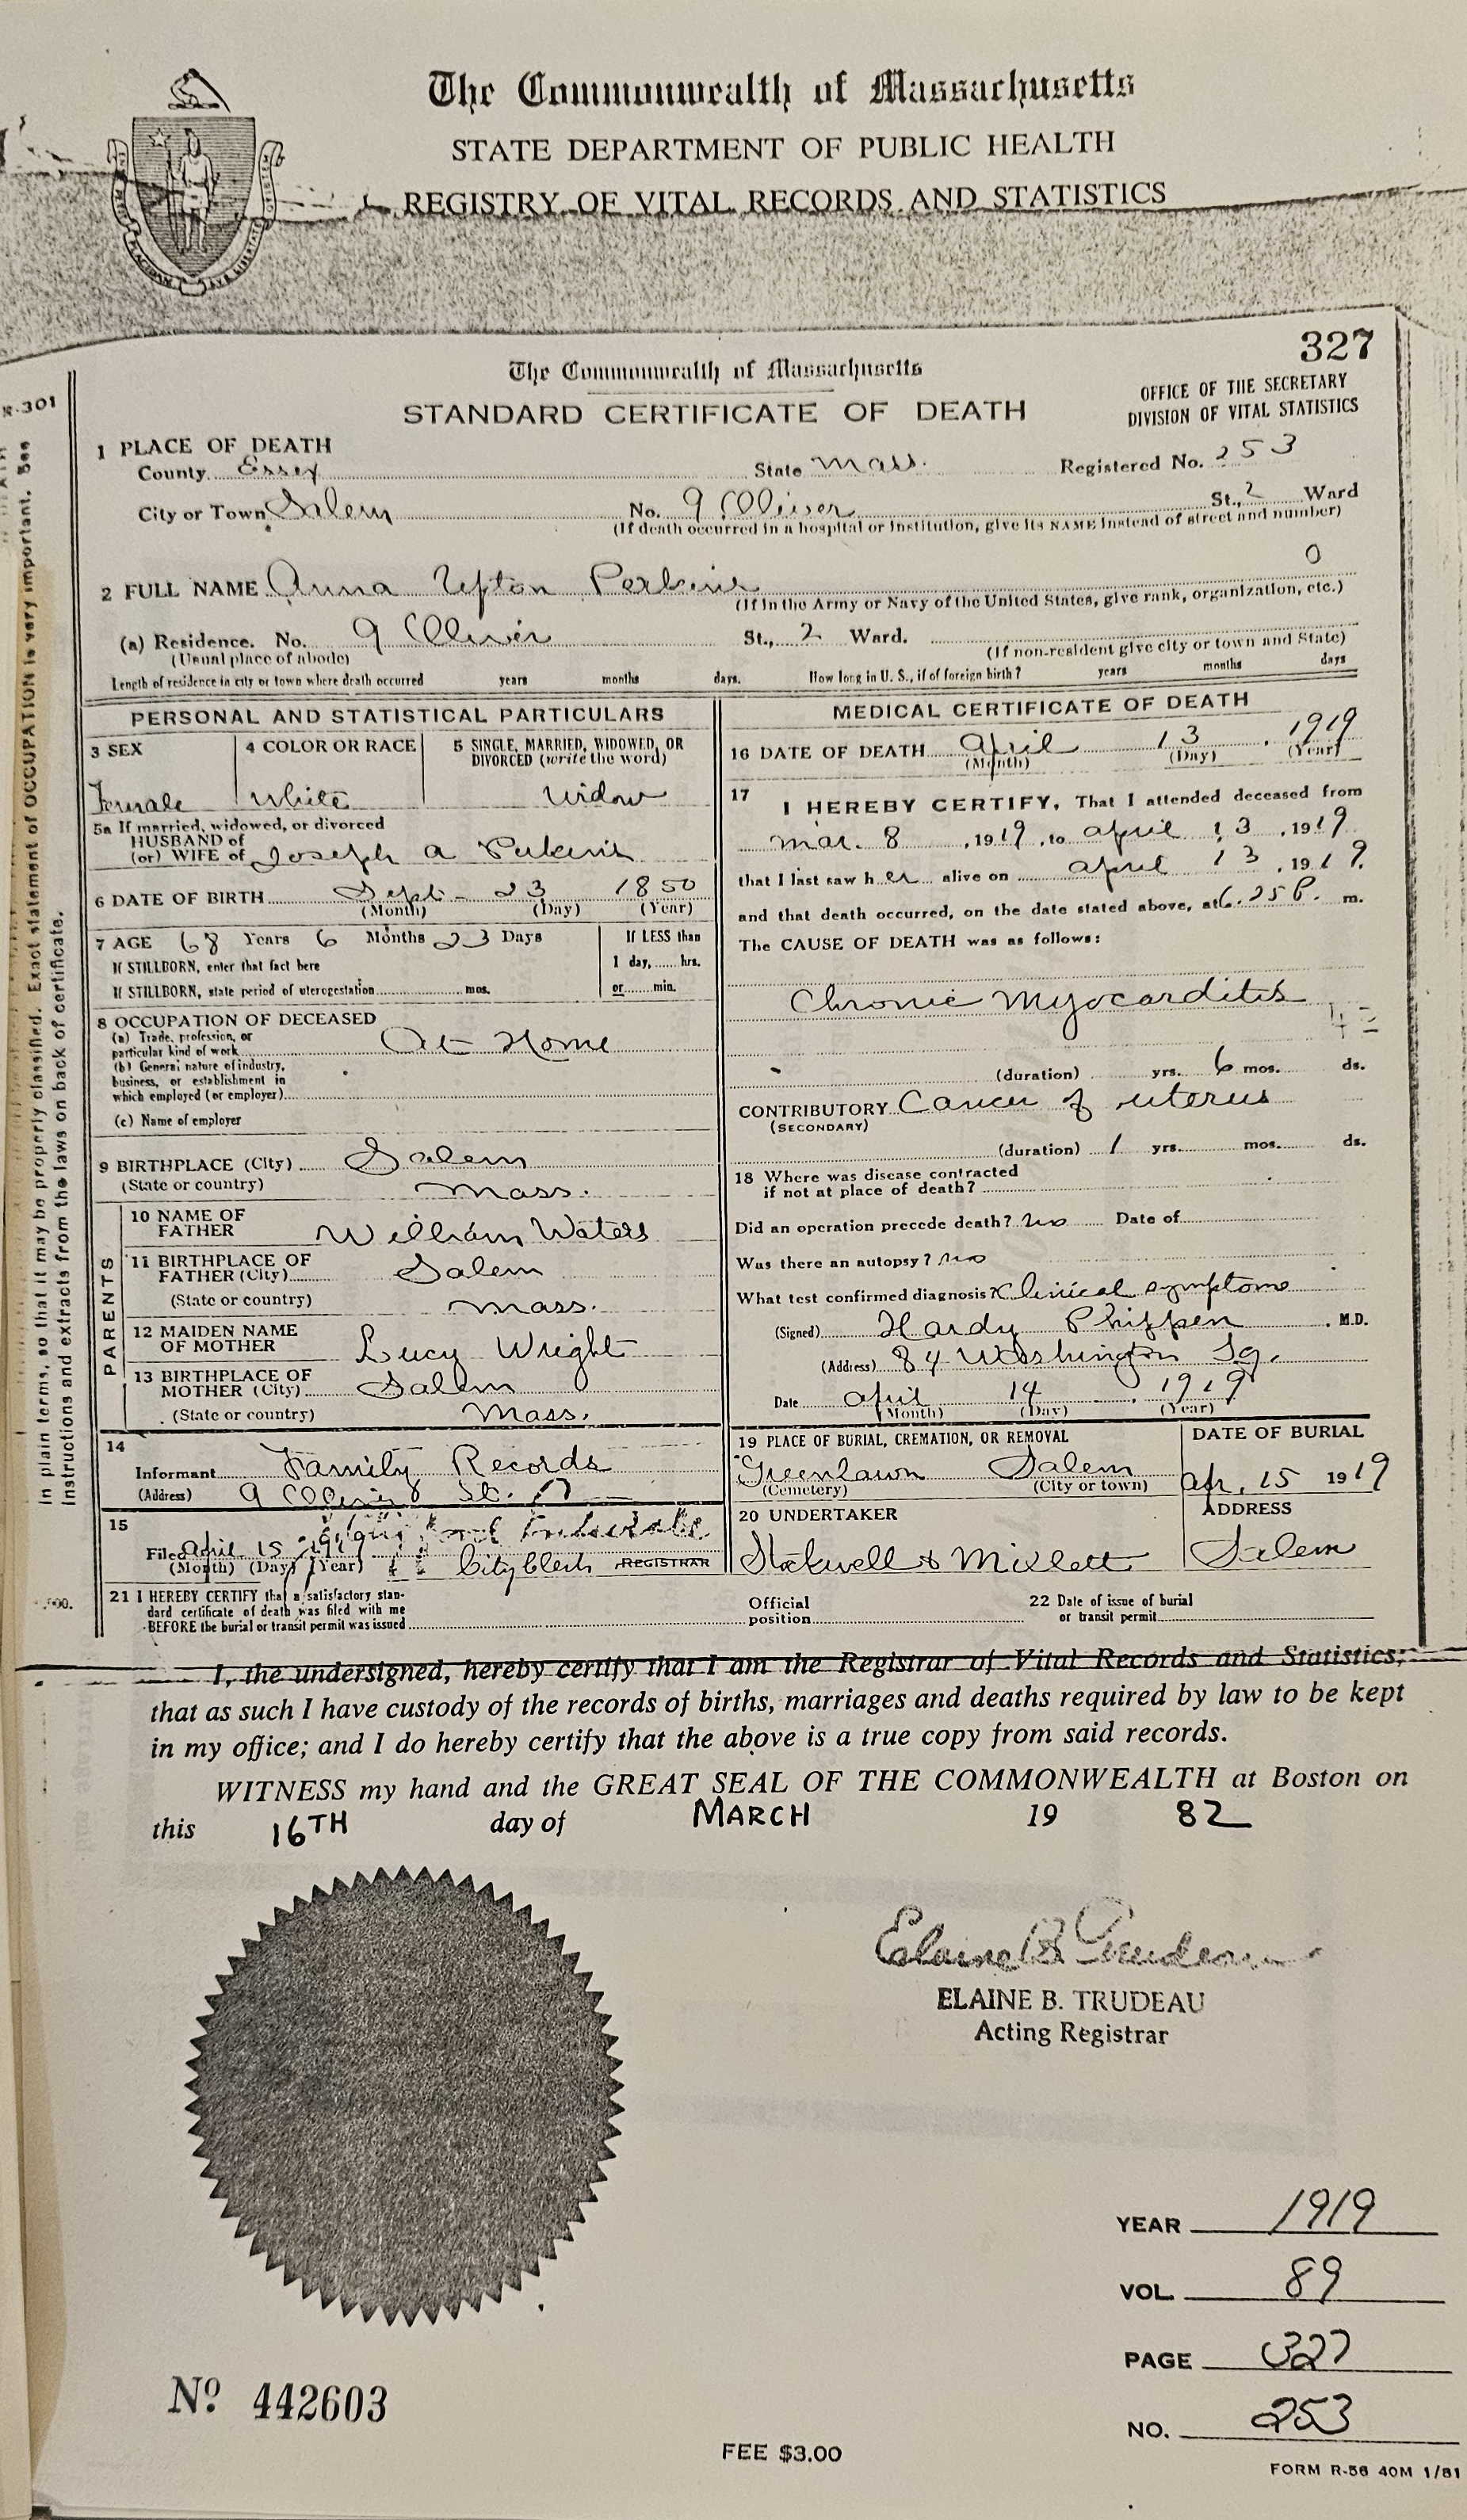 The Commonwealth of Massachusetts
STATE DEPARTMENT OF PUBLIC HEALTH
REGISTRY OF VITAL RECORDS AND STATISTICS
327
The Commonwealth of Massachusetts
OFFICE OF THE SECRETARY
DIVISION OF VITAL STATISTICS
R-301
STANDARD CERTIFICATE OF DEATH
1 PLACE OF DEATH
County Essex State Mass. Registered No. 253
City or Town Salem No. 9 Oliver St., 2 Ward
(If death occurred in a hospital or institution, give its NAME instead of street and number)
2 FULL NAME Anna Upton Perkins 0
(If in the Army or Navy of the United States, give rank, organization, etc.)
(a) Residence. No. 9 Oliver St., 2 Ward.
(Usual place of abode) (If non-resident give city or town and State)
Length of residence in city or town where death occurred years months days. How long in U. S., if of foreign birth? years months days
PERSONAL AND STATISTICAL PARTICULARS
3 SEX 4 COLOR OR RACE 5 SINGLE, MARRIED, WIDOWED, OR
DIVORCED (write the word)
Female White Widow
5a If married, widowed, or divorced
HUSBAND of
(or) WIFE of Joseph A Perkins
6 DATE OF BIRTH Sept- 23 1850
(Month) (Day) (Year)
7 AGE 68 Years 6 Months 23 Days If LESS than
If STILLBORN, enter that fact here 1 day, hrs.
If STILLBORN, state period of uterogestation mos. or min.
8 OCCUPATION OF DECEASED
(a) Trade, profession, or
particular kind of work At Home
(b) General nature of industry,
business, or establishment in
which employed (or employer)
(c) Name of employer
9 BIRTHPLACE (City) Salem
(State or country) Mass.
PARENTS
10 NAME OF
FATHER William Waters
11 BIRTHPLACE OF
FATHER (City) Salem
(State or country) Mass.
12 MAIDEN NAME
OF MOTHER Lucy Wright
13 BIRTHPLACE OF
MOTHER (City) Salem
(State or country) Mass.
14
Informant Family Records
(Address) 9 Oliver St.
15
Filed April 15 1919
(Month) (Day) (Year) City Clerk REGISTRAR
MEDICAL CERTIFICATE OF DEATH
16 DATE OF DEATH April 13, 1919
(Month) (Day) (Year)
17 I HEREBY CERTIFY, That I attended deceased from
Mar. 8, 1919, to April 13, 1919
that I last saw her alive on April 13, 1919.
and that death occurred, on the date stated above, at 6.25 P. m.
The CAUSE OF DEATH was as follows:
Chronic Myocarditis
(duration) yrs. 6 mos. ds.
CONTRIBUTORY Cancer of uterus
(SECONDARY)
(duration) 1 yrs. mos. ds.
18 Where was disease contracted
if not at place of death?
Did an operation precede death? no Date of
Was there an autopsy? no
What test confirmed diagnosis? Clinical symptoms
(Signed) Hardy Phippen, M.D.
(Address) 84 Washington Sq.
Date April 14, 1919
(Month) (Day) (Year)
19 PLACE OF BURIAL, CREMATION, OR REMOVAL DATE OF BURIAL
Greenlawn Salem Apr. 15 1919
(Cemetery) (City or town)
20 UNDERTAKER ADDRESS
Stockwell & Millett Salem
21 I HEREBY CERTIFY that a satisfactory stan-
dard certificate of death was filed with me
BEFORE the burial or transit permit was issued
Official
position
22 Date of issue of burial
or transit permit
In plain terms, so that it may be properly classified. Exact statement of OCCUPATION is very important. See
instructions and extracts from the laws on back of certificate.
I, the undersigned, hereby certify that I am the Registrar of Vital Records and Statistics;
that as such I have custody of the records of births, marriages and deaths required by law to be kept
in my office; and I do hereby certify that the above is a true copy from said records.
WITNESS my hand and the GREAT SEAL OF THE COMMONWEALTH at Boston on
this 16TH day of MARCH 19 82
Elaine B Trudeau
ELAINE B. TRUDEAU
Acting Registrar
YEAR 1919
VOL. 89
PAGE 327
NO. 253
No 442603
FEE $3.00
FORM R-56 40M 1/81